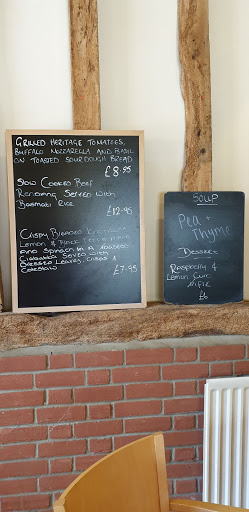 GRILLED HERITAGE TOMATOES,
BUFFALO MOZZARELLA AND BASIL
ON TOASTED SOURDOUGH BREAD
£8.95
Slow Cooked Beef
Rendang Served with
Basmati Rice
£12.95
Crispy Breaded
Lemon & Black
and Spinach in a Toasted
Ciabatta Served with
Dressed Leaves, Crisps &
Coleslaw £7.95
SOUP
Pea +
Thyme
Dessert
Raspberry &
Lemon Curd
Trifle
£6